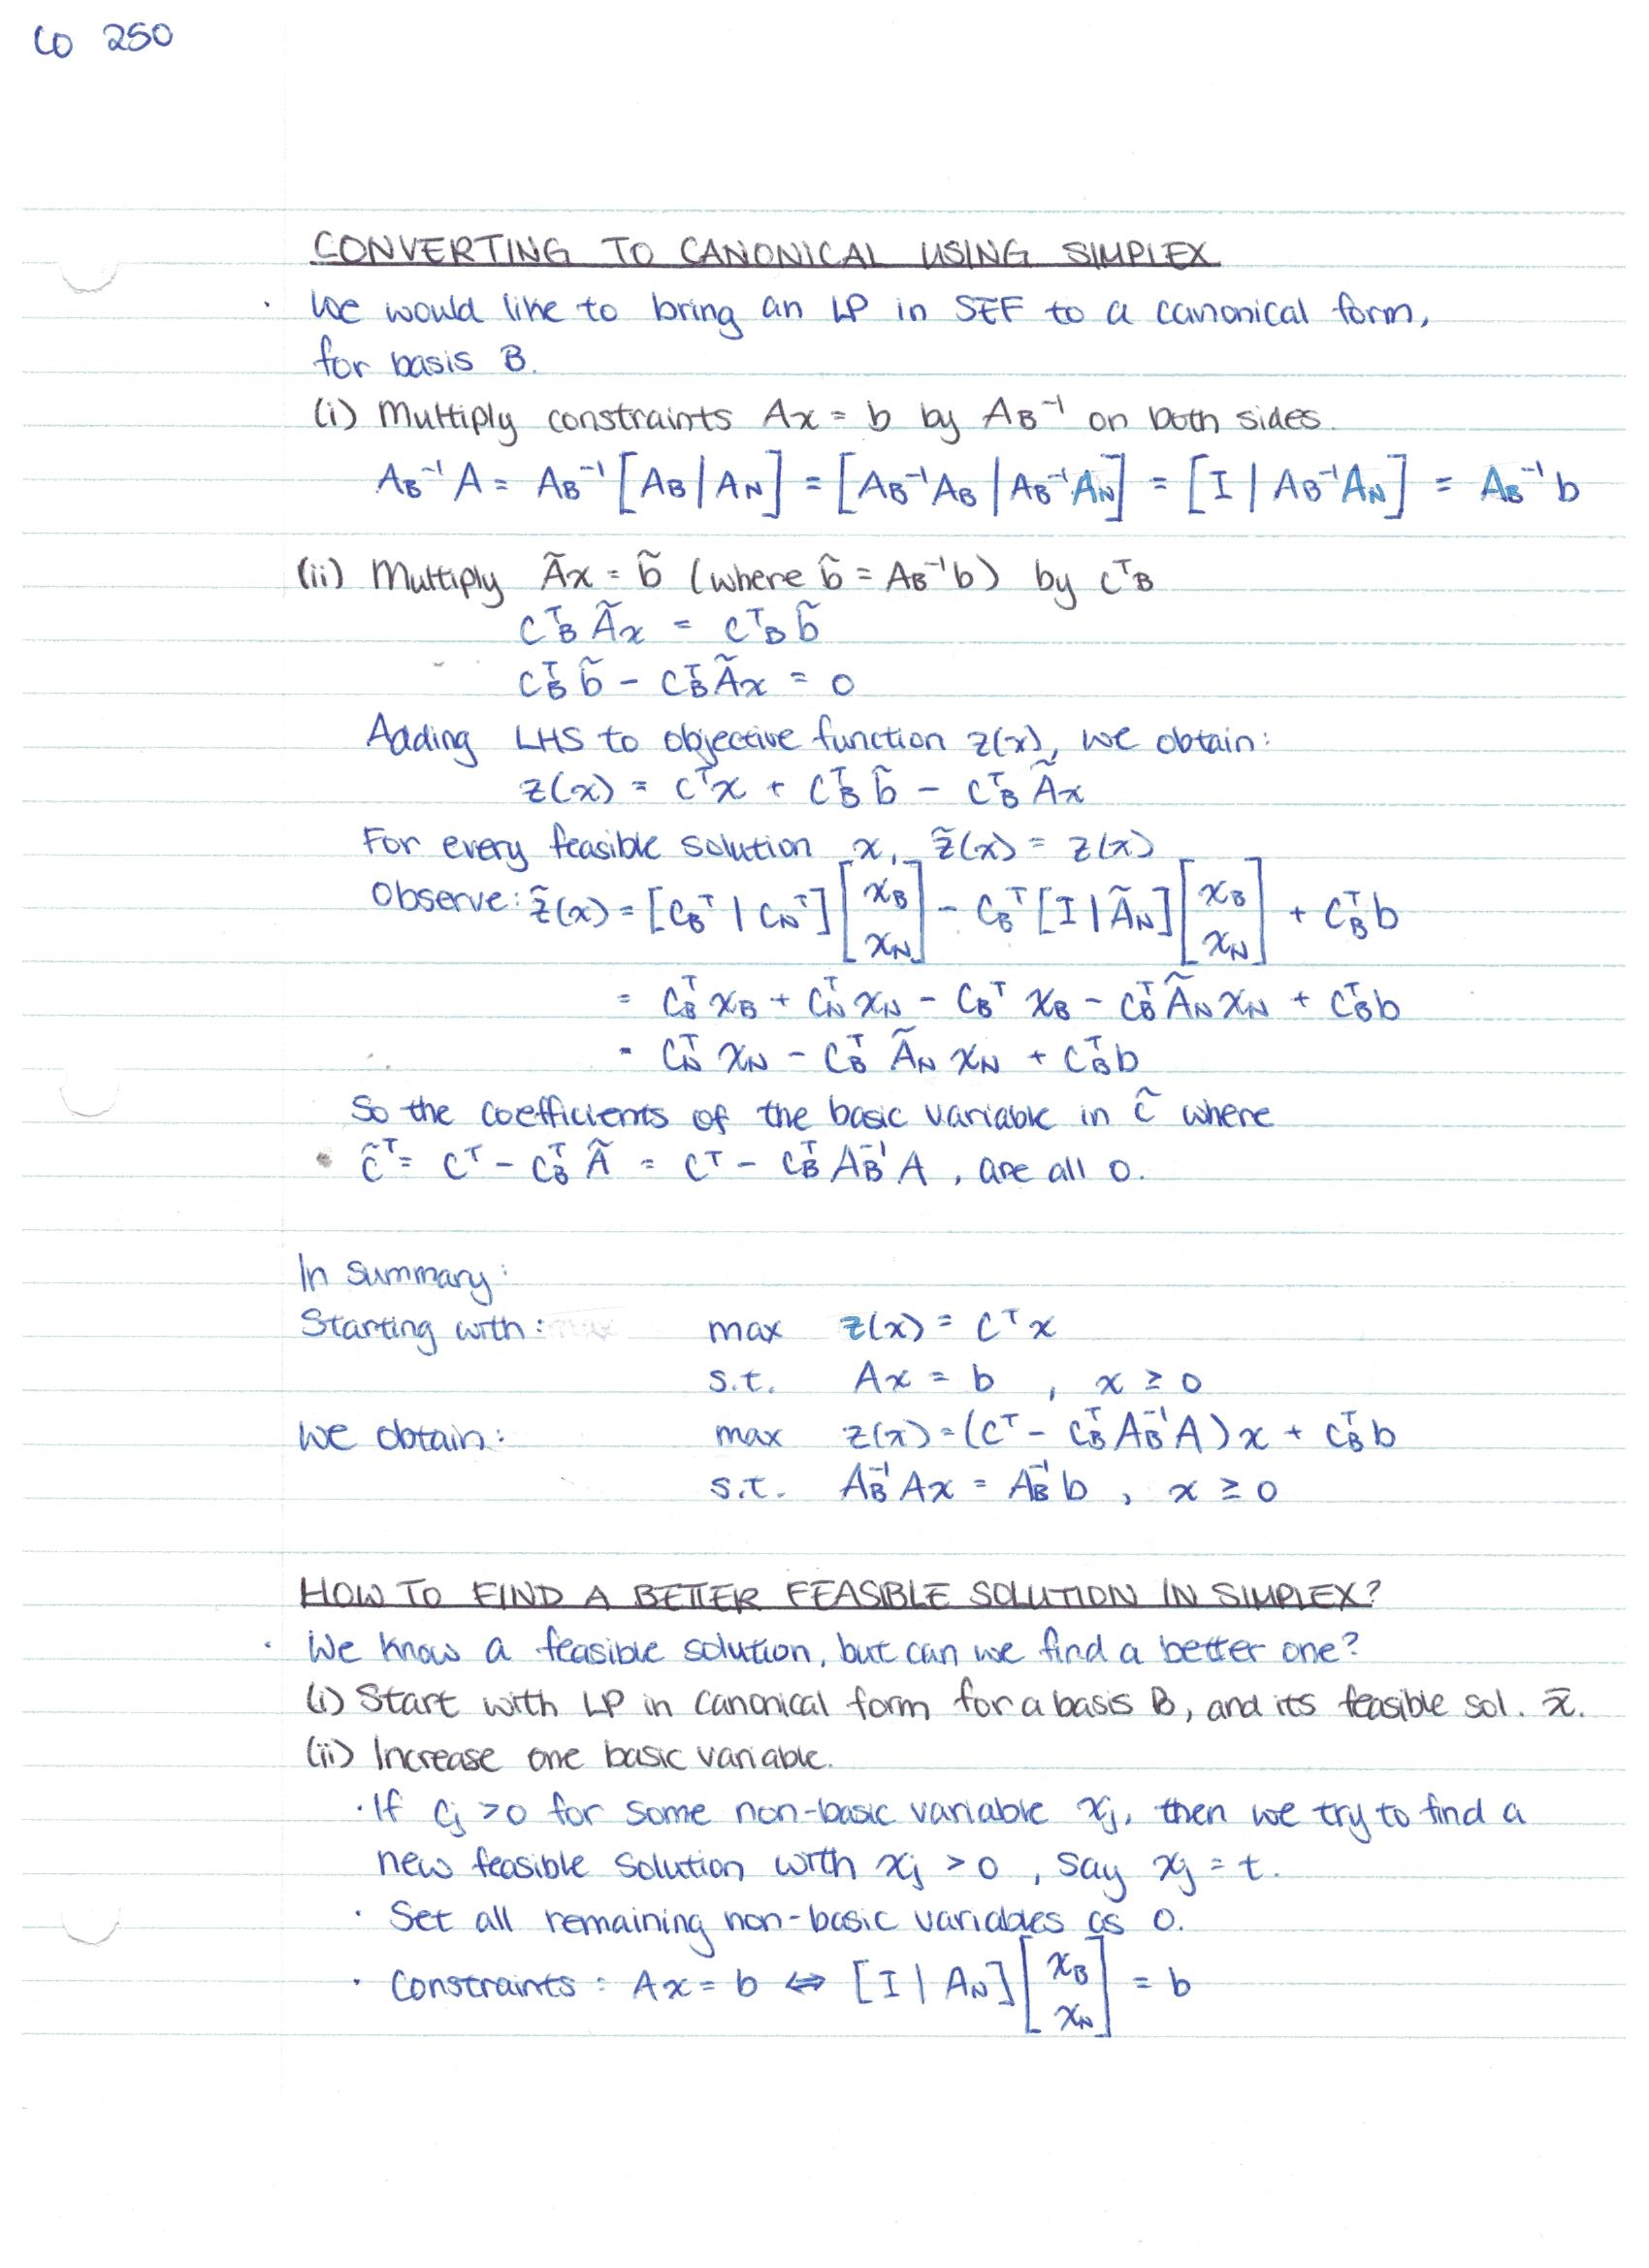 CO 250
CONVERTING TO CANONICAL USING SIMPLEX
· We would like to bring an LP in SEF to a canonical form,
for basis B.
(i) Multiply constraints Ax = b by A_B⁻¹ on both sides.
A_B⁻¹ A = A_B⁻¹ [A_B | A_N] = [A_B⁻¹A_B | A_B⁻¹A_N] = [I | A_B⁻¹A_N] = A_B⁻¹ b
(ii) Multiply Ãx = b̃ (where b̃ = A_B⁻¹b) by cᵀ_B
cᵀ_B Ãx = cᵀ_B b̃
cᵀ_B b̃ - cᵀ_B Ãx = 0
Adding LHS to objective function z(x), we obtain:
z(x) = cᵀx + cᵀ_B b̃ - cᵀ_B Ãx
For every feasible solution x, z̃(x) = z(x)
Observe: z̃(x) = [c_Bᵀ | c_Nᵀ] [x_B x_N] - c_Bᵀ [I | Ã_N] [x_B x_N] + c_Bᵀ b
= c_Bᵀ x_B + c_Nᵀ x_N - c_Bᵀ x_B - c_Bᵀ Ã_N x_N + c_Bᵀ b
= c_Nᵀ x_N - c_Bᵀ Ã_N x_N + c_Bᵀ b
So the coefficients of the basic variable in c̃ where
c̃ᵀ = cᵀ - c_Bᵀ Ã = cᵀ - c_Bᵀ A_B⁻¹ A, are all 0.
In summary:
Starting with: max z(x) = cᵀx
s.t. Ax = b , x ≥ 0
We obtain: max z(x) = (cᵀ - c_Bᵀ A_B⁻¹ A)x + c_Bᵀ b
s.t. A_B⁻¹ Ax = A_B⁻¹ b , x ≥ 0
HOW TO FIND A BETTER FEASIBLE SOLUTION IN SIMPLEX?
· We know a feasible solution, but can we find a better one?
(i) Start with LP in canonical form for a basis B, and its feasible sol. x̄.
(ii) Increase one basic variable.
· If c_j > 0 for some non-basic variable x_j, then we try to find a
new feasible solution with x_j > 0, say x_j = t.
· Set all remaining non-basic variables as 0.
· Constraints: Ax = b ⇔ [I | A_N] [x_B x_N] = b